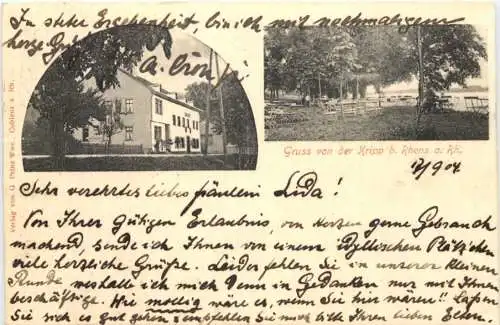 In stiller Ergebenheit, bin ich mit nochmaligem
herzl. Gruß
Gruss von der Kripp b. Rhens a. Rh.
17/9 04
Verlag von G. Peters Wwe. Coblenz a. Rh.
Sehr verehrtes liebes Fräulein Lida!
Von Ihrer gütigen Erlaubnis, von Herzen gerne Gebrauch
machend, sende ich Ihnen von einem idyllischen Plätzchen
viele herzliche Grüße. Leider fehlen Sie in unserer kleinen
Runde weshalb ich mich denn in Gedanken nur mit Ihnen
beschäftige. Wie mollig wäre es, wenn Sie hier wären!! Laßen
Sie sich es gut gehen & empfehlen Sie mich bitte Ihren lieben Eltern.